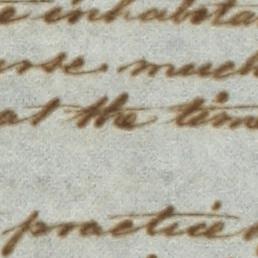 e inhabita
urse much
at the time
practice